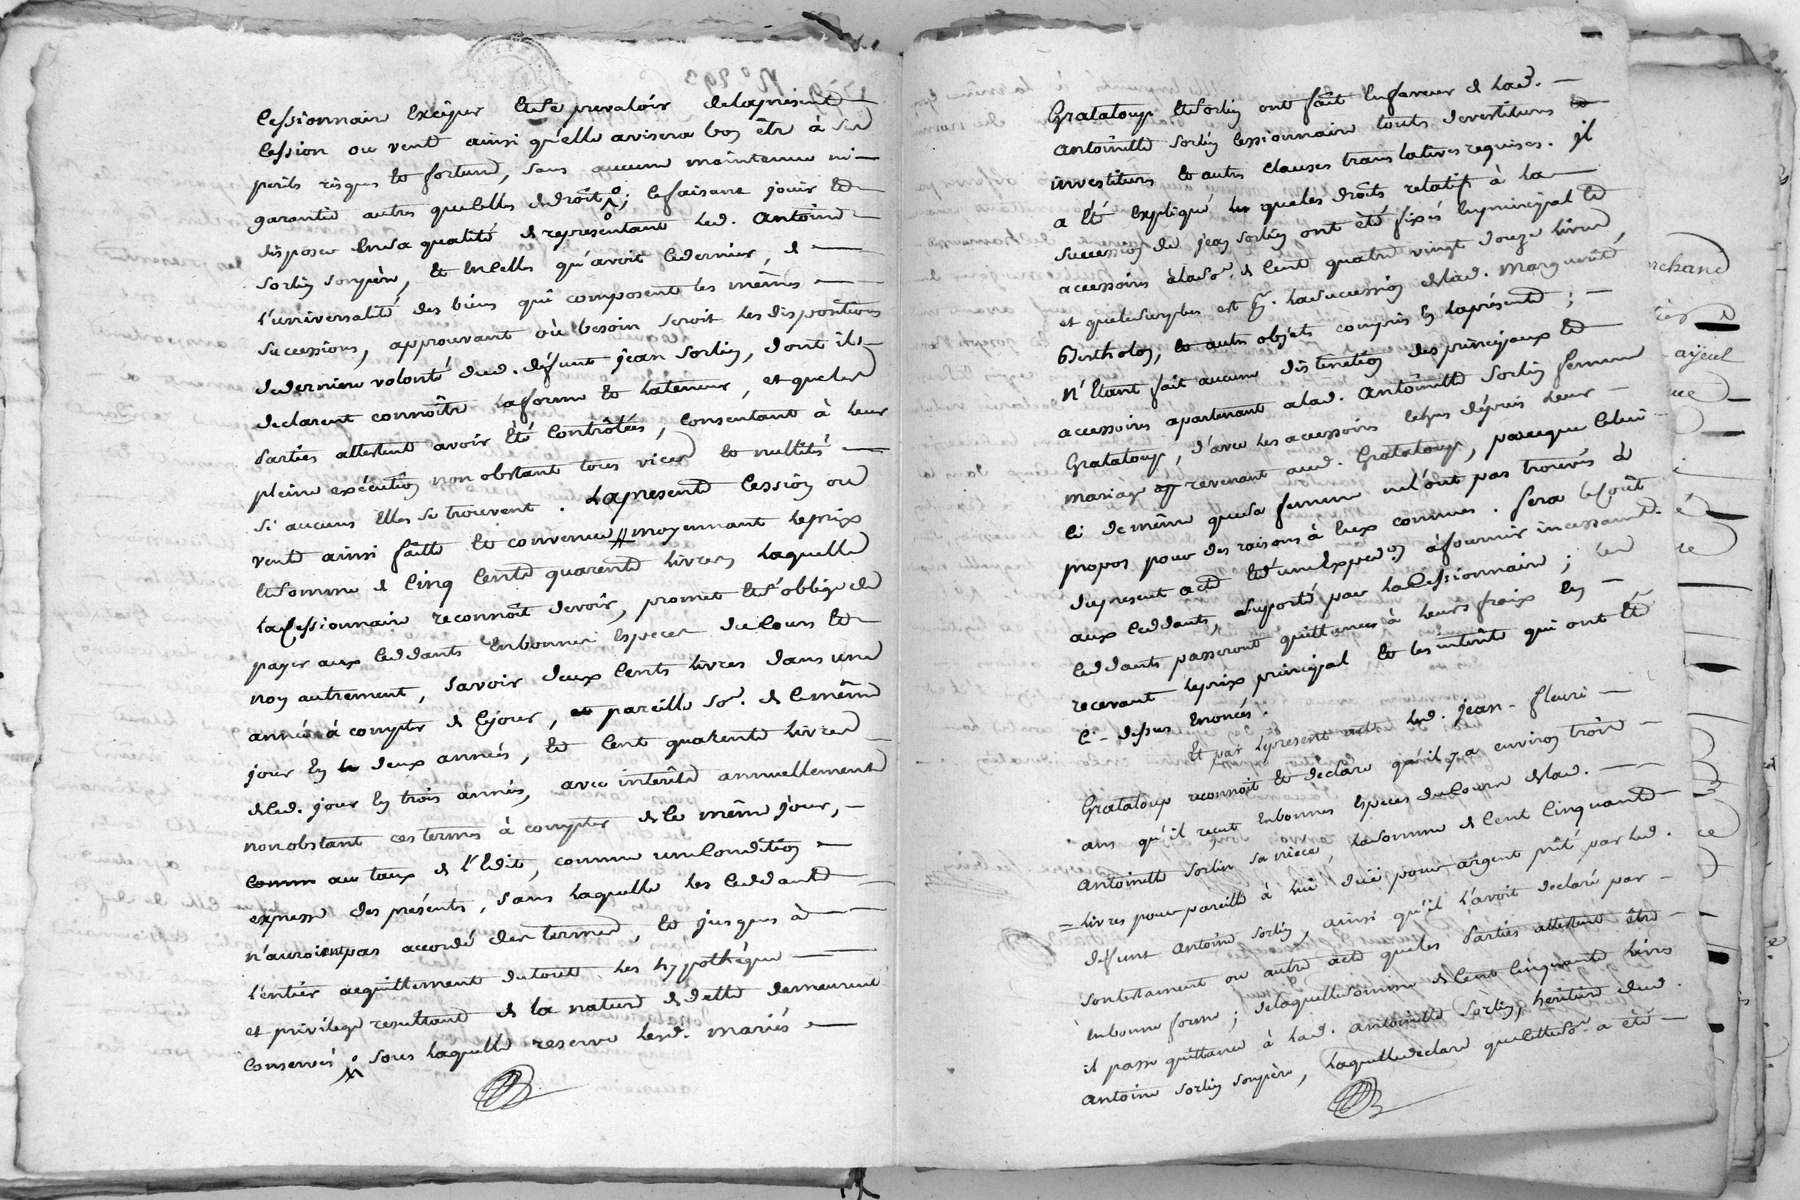 cessionnaire exciper et se prevaloir de la presente
cession ou vente ainsi qu'elle avisera bon être à ses
perils risques et fortune, sans aucune maintenue ni
garantie autres que celles de droit; le faisant jouir et
disposer en sa qualité de representante dud. Antoine
Sorlin son père, et en celles qu'avoit ce dernier, de
l'universalité des biens qui composent les mêmes
successions, approuvant où besoin seroit les dispositions
de derniere volonté dud. défunt jean Sorlin, dont ils
declarent connoître la forme et la teneur, et que les
parties attestent avoir été contrôlées, consentant à leur
pleine exécution nonobstant tous vices et nullités
si aucuns elles se trouvent. La presente cession ou
vente ainsi faitte et convenue moyennant le prix
et somme de cinq cents quarente livres laquelle
la Cessionnaire reconnoît devoir, promet et s'oblige de
payer aux Ceddants en bonnes especes de cours et
non autrement, savoir deux cents livres dans une
année à compter de ce jour, et pareille so.e de ce même
jour en deux années, et cent quarente livres
dud. jour en trois années, avec interêts annuellement
nonobstant ces termes à compter de ce même jour,
comm au taux de l'Edit, comme une Condition
expresse des présents, sans laquelle les Ceddants
n'auroient pas accordé des termes, et jusques à
l'entier acquittement du tout les hypothèque
et privilege resultant de la nature de dette demeurent
conservés; sous laquelle reserve lesd. mariés
Grataloup et Sorlin ont fait en faveur de lad.
Antoinette Sorlin Cessionnaire touts devestitures
investitures et autres clauses translatives requises. Il
a été expliqué que les droits relatifs à la
succession de jean Sorlin ont été fixés en principal et
accessoires à la so.e de cent quatre vingt douze livres,
et que le surplus est p.r la succession de lad. Marguerite
Bertholon, et autres objets compris en la présente;
n'étant fait aucune distinction des principaux et
accessoires apartenant à lad. Antoinette Sorlin femme
Grataloup, d'avec les accessoires échus depuis leur
mariage revenant aud. Grataloup, parceque celui
ci de même que sa femme ne l'ont pas trouvés à
propos pour des raisons à eux connues. Sera le coût
du present acte et d'une expedon. à fournir incessamt.
aux Ceddants, suporté par la Cessionnaire; les
Ceddants passeront quittances à leurs frais en
recevant le prix principal et les intérêts qui ont été
ci-dessus énoncés.
Et par le present acte led. jean-fleuri
Grataloup reconnoît et declare qu'il y a environ trois
ans qu'il reçut en bonnes especes de cours de lad.
Antoinette Sorlin sa niece, la somme de cent cinquante
livres pour pareille à lui due pour argent prêté par led.
deffunt Antoine Sorlin, ainsi qu'il l'avoit declaré par
son testament ou autre acte que les parties attestent être
en bonne forme; de laquelle somme de cent cinquante livres
il passe quittance à lad. Antoinette Sorlin, héritière dud.
Antoine Sorlin son père, laquelle declare que cette so.e a été